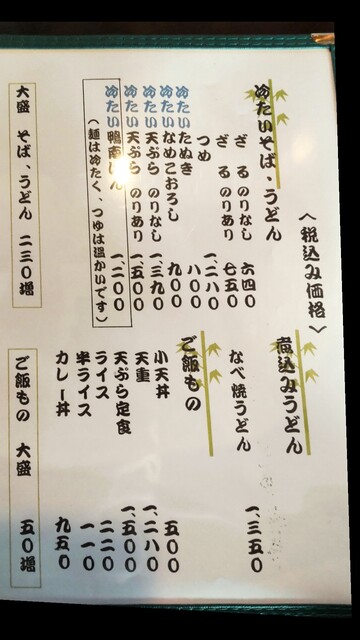 〈税込み価格〉
冷たいそば・うどん
ざる のりなし 六四〇
ざる のりあり 七五〇
つめ 一、二八〇
冷たい たぬき 八〇〇
冷たい なめこおろし 九〇〇
冷たい 天ぷら のりなし 一、三九〇
冷たい 天ぷら のりあり 一、五〇〇
冷たい 鴨南ばん 一、二〇〇
(麺は冷たく、つゆは温かいです)
大盛 そば、うどん 二三〇増
煮込みうどん
なべ焼うどん 一、三五〇
ご飯もの
小天丼 五〇〇
天重 一、二八〇
天ぷら定食 一、五〇〇
ライス 二二〇
半ライス 一一〇
カレー丼 九五〇
ご飯もの 大盛 五〇増